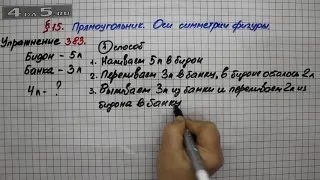 4p5.ru
§15. Прямоугольник. Оси симметрии фигуры.
Упражнение 383.
① способ
Бидон - 5л
Банка - 3л
4л - ?
1. Наливаем 5л в бидон
2. Переливаем 3л в банку, в бидоне осталось 2л
3. Выливаем 3л из банки и переливаем 2л из
бидона в банку